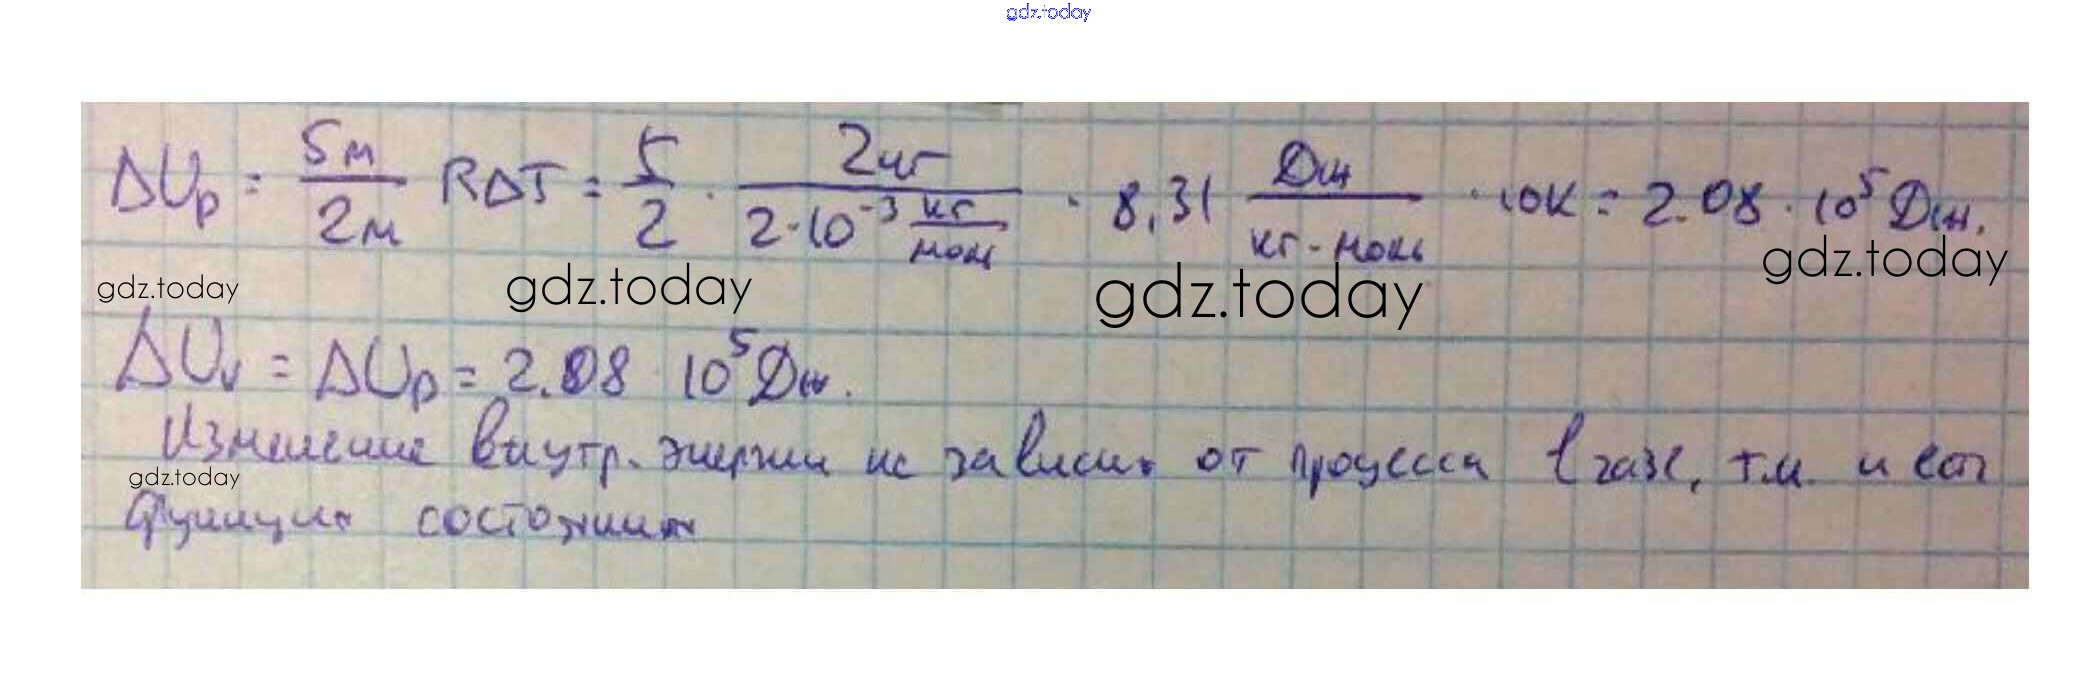 gdz.today
ΔUp = 5м/2м RΔT = 5/2 · 2кг/(2·10⁻³ кг/моль) · 8,31 Дж/(кг-моль) · 10К = 2.08 · 10⁵ Дж.
gdz.today gdz.today gdz.today gdz.today
ΔUv = ΔUp = 2.08 · 10⁵ Дж.
Изменение внутр. энергии не зависит от процесса в газе, т.к. и есть
gdz.today
функция состояния